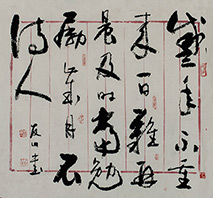 盛年不重
来一日難再
晨及时當勉
励歲月不
待人